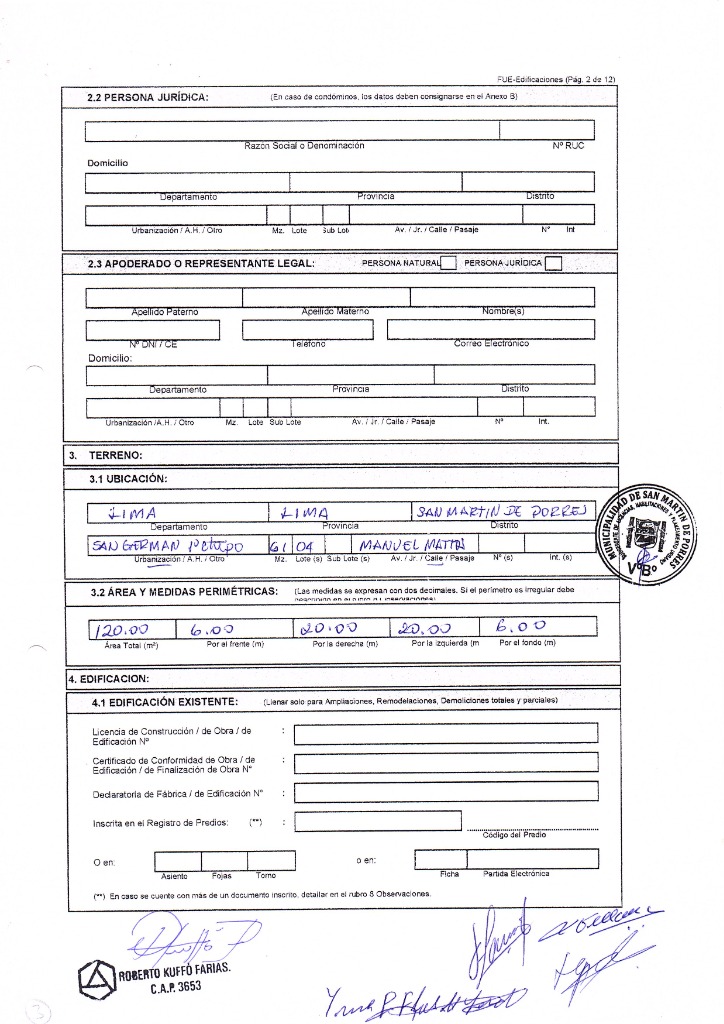 FUE-Edificaciones (Pág. 2 de 12)
2.2 PERSONA JURÍDICA: (En caso de condóminos, los datos deben consignarse en el Anexo B)
Razón Social o Denominación Nº RUC
Domicilio
Departamento Provincia Distrito
Urbanización / A.H. / Otro Mz. Lote Sub Lote Av. / Jr. / Calle / Pasaje Nº Int
2.3 APODERADO O REPRESENTANTE LEGAL: PERSONA NATURAL PERSONA JURÍDICA
Apellido Paterno Apellido Materno Nombre(s)
Nº DNI / CE Teléfono Correo Electrónico
Domicilio:
Departamento Provincia Distrito
Urbanización /A.H. / Otro Mz. Lote Sub Lote Av. / Jr. / Calle / Pasaje Nº Int.
3. TERRENO:
3.1 UBICACIÓN:
LIMA LIMA SAN MARTIN DE PORRES
Departamento Provincia Distrito
SAN GERMAN 61 04 MANUEL MATTA
Urbanización / A.H. / Otro Mz. Lote (s) Sub Lote (s) Av. / Jr. / Calle / Pasaje Nº (s) Int. (s)
MUNICIPALIDAD DE SAN MARTIN DE PORRES
VºBº
3.2 ÁREA Y MEDIDAS PERIMÉTRICAS: (Las medidas se expresan con dos decimales. Si el perímetro es irregular debe
120.00 6.00 20.00 20.00 6.00
Área Total (m²) Por el frente (m) Por la derecha (m) Por la izquierda (m Por el fondo (m)
4. EDIFICACION:
4.1 EDIFICACIÓN EXISTENTE: (Llenar solo para Ampliaciones, Remodelaciones, Demoliciones totales y parciales)
Licencia de Construcción / de Obra / de :
Edificación Nº
Certificado de Conformidad de Obra / de :
Edificación / de Finalización de Obra Nº
Declaratoria de Fábrica / de Edificación Nº :
Inscrita en el Registro de Predios: (**) :
Código del Predio
O en: o en:
Asiento Fojas Tomo Ficha Partida Electrónica
(**) En caso se cuente con más de un documento inscrito, detallar en el rubro 8 Observaciones.
ROBERTO KUFFÓ FARIAS.
C.A.P. 3653
3